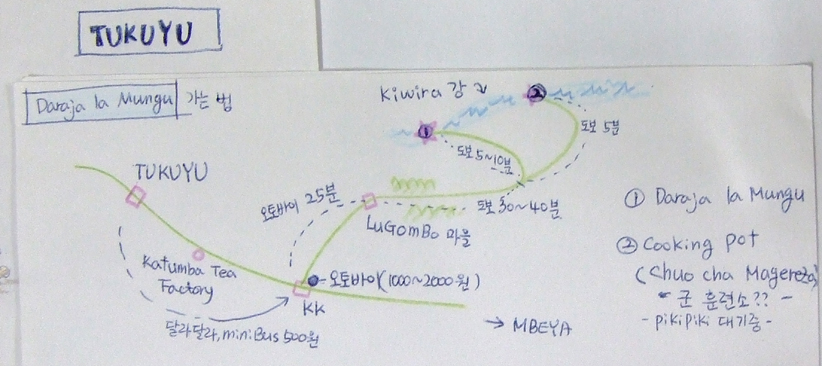 TUKUYU
Daraja la Mungu 가는 법
Kiwira 강
①
②
도보 5분
도보 5~10분
TUKUYU
오토바이 25분
도보 30~40분
LuGomBo 마을
Katumba Tea
Factory
오토바이(1000~2000원)
KK
달라달라, miniBus 500원
→ MBEYA
① Daraja la Mungu
② Cooking pot
(Chuo cha Magereza)
군 훈련소??
- pikipiki 대기중 -